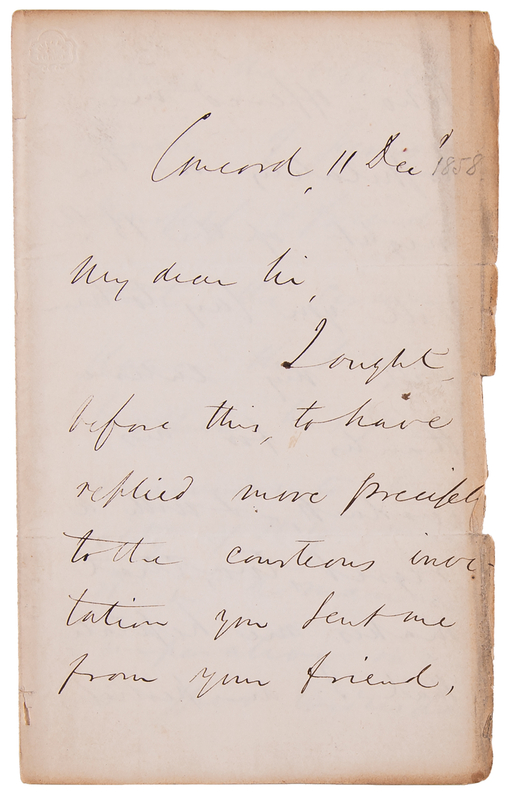 Concord, 11 Decr 1858
My dear Sir,
I ought,
before this, to have
replied more precisely
to the courteous invi-
tation you sent me
from your friend,